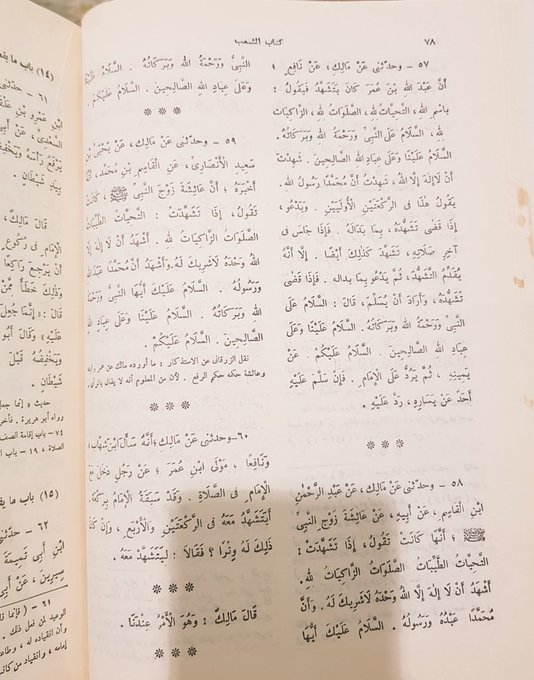 ٧٨
كتاب الشعب
٥٧ – وحدثنى عَنْ مَالِكٍ، عَنْ نَافِعٍ ؛
أَنَّ عَبْدَ اللهِ بْنَ عُمَرَ كَانَ يَتَشَهَّدُ فَيَقُولُ :
بِاسْمِ اللهِ، التَّحِيَّاتُ لِلهِ، الصَّلَوَاتُ لِلهِ، الزَّاكِيَاتُ
لِلهِ، السَّلَامُ عَلَى النَّبِىِّ وَرَحْمَةُ اللهِ وَبَرَكَاتُهُ.
السَّلَامُ عَلَيْنَا وَعَلَى عِبَادِ اللهِ الصَّالِحِينَ. شَهِدْتُ
أَنْ لَا إِلٰهَ إِلَّا اللهُ، شَهِدْتُ أَنَّ مُحَمَّدًا رَسُولُ اللهِ.
يَقُولُ هٰذَا فِى الرَّكْعَتَيْنِ الْأُولَيَيْنِ . وَيَدْعُو،
إِذَا قَضَى تَشَهُّدَهُ، بِمَا بَدَالَهُ . فَإِذَا جَلَسَ فِى
آخِرِ صَلَاتِهِ، تَشَهَّدَ كَذٰلِكَ أَيْضًا . إِلَّا أَنَّهُ
يُقَدِّمُ التَّشَهُّدَ، ثُمَّ يَدْعُو بِمَا بداله . فَإِذَا قَضَى
تَشَهُّدَهُ، وَأَرَادَ أَنْ يُسَلِّمَ، قَالَ : السَّلَامُ عَلَى
النَّبِىِّ وَرَحْمَةُ اللهِ وَبَرَكَاتُهُ. السَّلَامُ عَلَيْنَا وَعَلَى
عِبَادِ اللهِ الصَّالِحِينَ. السَّلَامُ عَلَيْكُمْ . عَنْ
يَمِينِهِ . ثُمَّ يَرُدُّ عَلَى الْإِمَامِ . فَإِنْ سَلَّمَ عَلَيْهِ
أَحَدٌ عَنْ يَسَارِهِ، رَدَّ عَلَيْهِ .
***
٥٨ – وحدثنى عَنْ مَالِكٍ، عَنْ عَبْدِ الرَّحْمٰنِ
ابْنِ الْقَاسِمِ، عَنْ أَبِيهِ، عَنْ عَائِشَةَ زَوْجِ النَّبِىِّ
ﷺ ؛ أَنَّهَا كَانَتْ تَقُولُ، إِذَا تَشَهَّدَتْ :
التَّحِيَّاتُ الطَّيِّبَاتُ الصَّلَوَاتُ الزَّاكِيَاتُ لِلهِ.
أَشْهَدُ أَنْ لَا إِلٰهَ إِلَّا اللهُ وَحْدَهُ لَاشَرِيكَ لَهُ. وَأَنَّ
مُحَمَّدًا عَبْدُهُ وَرَسُولُهُ . السَّلَامُ عَلَيْكَ أَيُّهَا
النَّبِىُّ وَرَحْمَةُ اللهِ وَبَرَكَاتُهُ . السَّلَامُ عَلَيْنَا
وَعَلَى عِبَادِ اللهِ الصَّالِحِينَ . السَّلَامُ عَلَيْكُمْ .
***
٥٩ – وحدثنى عَنْ مَالِكٍ، عَنْ يَحْيَى بْنِ
سَعِيدٍ الْأَنْصَارِىِّ، عَنِ الْقَاسِمِ بْنِ مُحَمَّدٍ، أَنَّهُ
أَخْبَرَهُ ؛ أَنَّ عَائِشَةَ زَوْجَ النَّبِىِّ ﷺ ، كَانَتْ
تَقُولُ، إِذَا تَشَهَّدَتْ : التَّحِيَّاتُ الطَّيِّبَاتُ
الصَّلَوَاتُ الزَّاكِيَاتُ لِلهِ . أَشْهَدُ أَنْ لَا إِلٰهَ إِلَّا
اللهُ وَحْدَهُ لَاشَرِيكَ لَهُ. وَأَشْهَدُ أَنَّ مُحَمَّدًا عَبْدُ اللهِ
وَرَسُولُهُ . السَّلَامُ عَلَيْكَ أَيُّهَا النَّبِىُّ وَرَحْمَةُ
اللهِ وَبَرَكَاتُهُ . السَّلَامُ عَلَيْنَا وَعَلَى عِبَادِ اللهِ
الصَّالِحِينَ. السَّلَامُ عَلَيْكُمْ .
نقل الزرقانى عن الاستذكار : ما أورده مالك عن عمر وابنه
وعائشة حكمه حكم الرفع . لأن من المعلوم أنه لا يقال بالرأى.
***
٦٠ – وحدثنى عَنْ مَالِكٍ ؛ أَنَّهُ سَأَلَ ابْنَ شِهَابٍ،
وَنَافِعًا ، مَوْلَى ابْنِ عُمَرَ ؛ عَنْ رَجُلٍ دَخَلَ مَعَ
الْإِمَامِ فِى الصَّلَاةِ . وَقَدْ سَبَقَهُ الْإِمَامُ بِرَكْعَةٍ.
أَيَتَشَهَّدُ مَعَهُ فِى الرَّكْعَتَيْنِ وَالْأَرْبَعِ ، وَإِنْ كَانَ
ذٰلِكَ لَهُ وِتْرًا ؟ فَقَالَا : لِيَتَشَهَّدْ مَعَهُ .
***
قَالَ مَالِكٌ : وَهُوَ الْأَمْرُ عِنْدَنَا .
***
(١٤) باب ما
٦١ – حدثنى
قَالَ مَالِكٌ ،
(١٥) باب ما
٦٢ – حدثنى